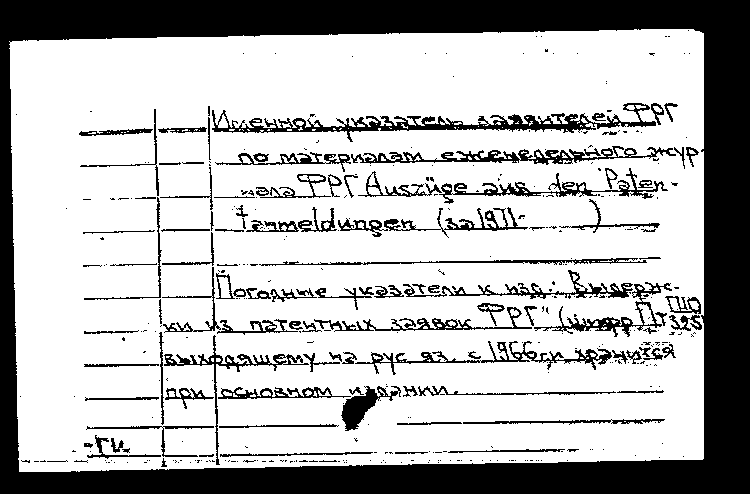 Именной указатель заявителей ФРГ
по материалам еженедельного жур-
нала ФРГ Auszüge aus den Paten-
tanmeldungen (за 1971-      )
Погодные указатели к изд.: Выдерж-
ки из патентных заявок ФРГ" (шифр Пт
выходящему на рус яз. с 1966г. и хранится
при основном издании.